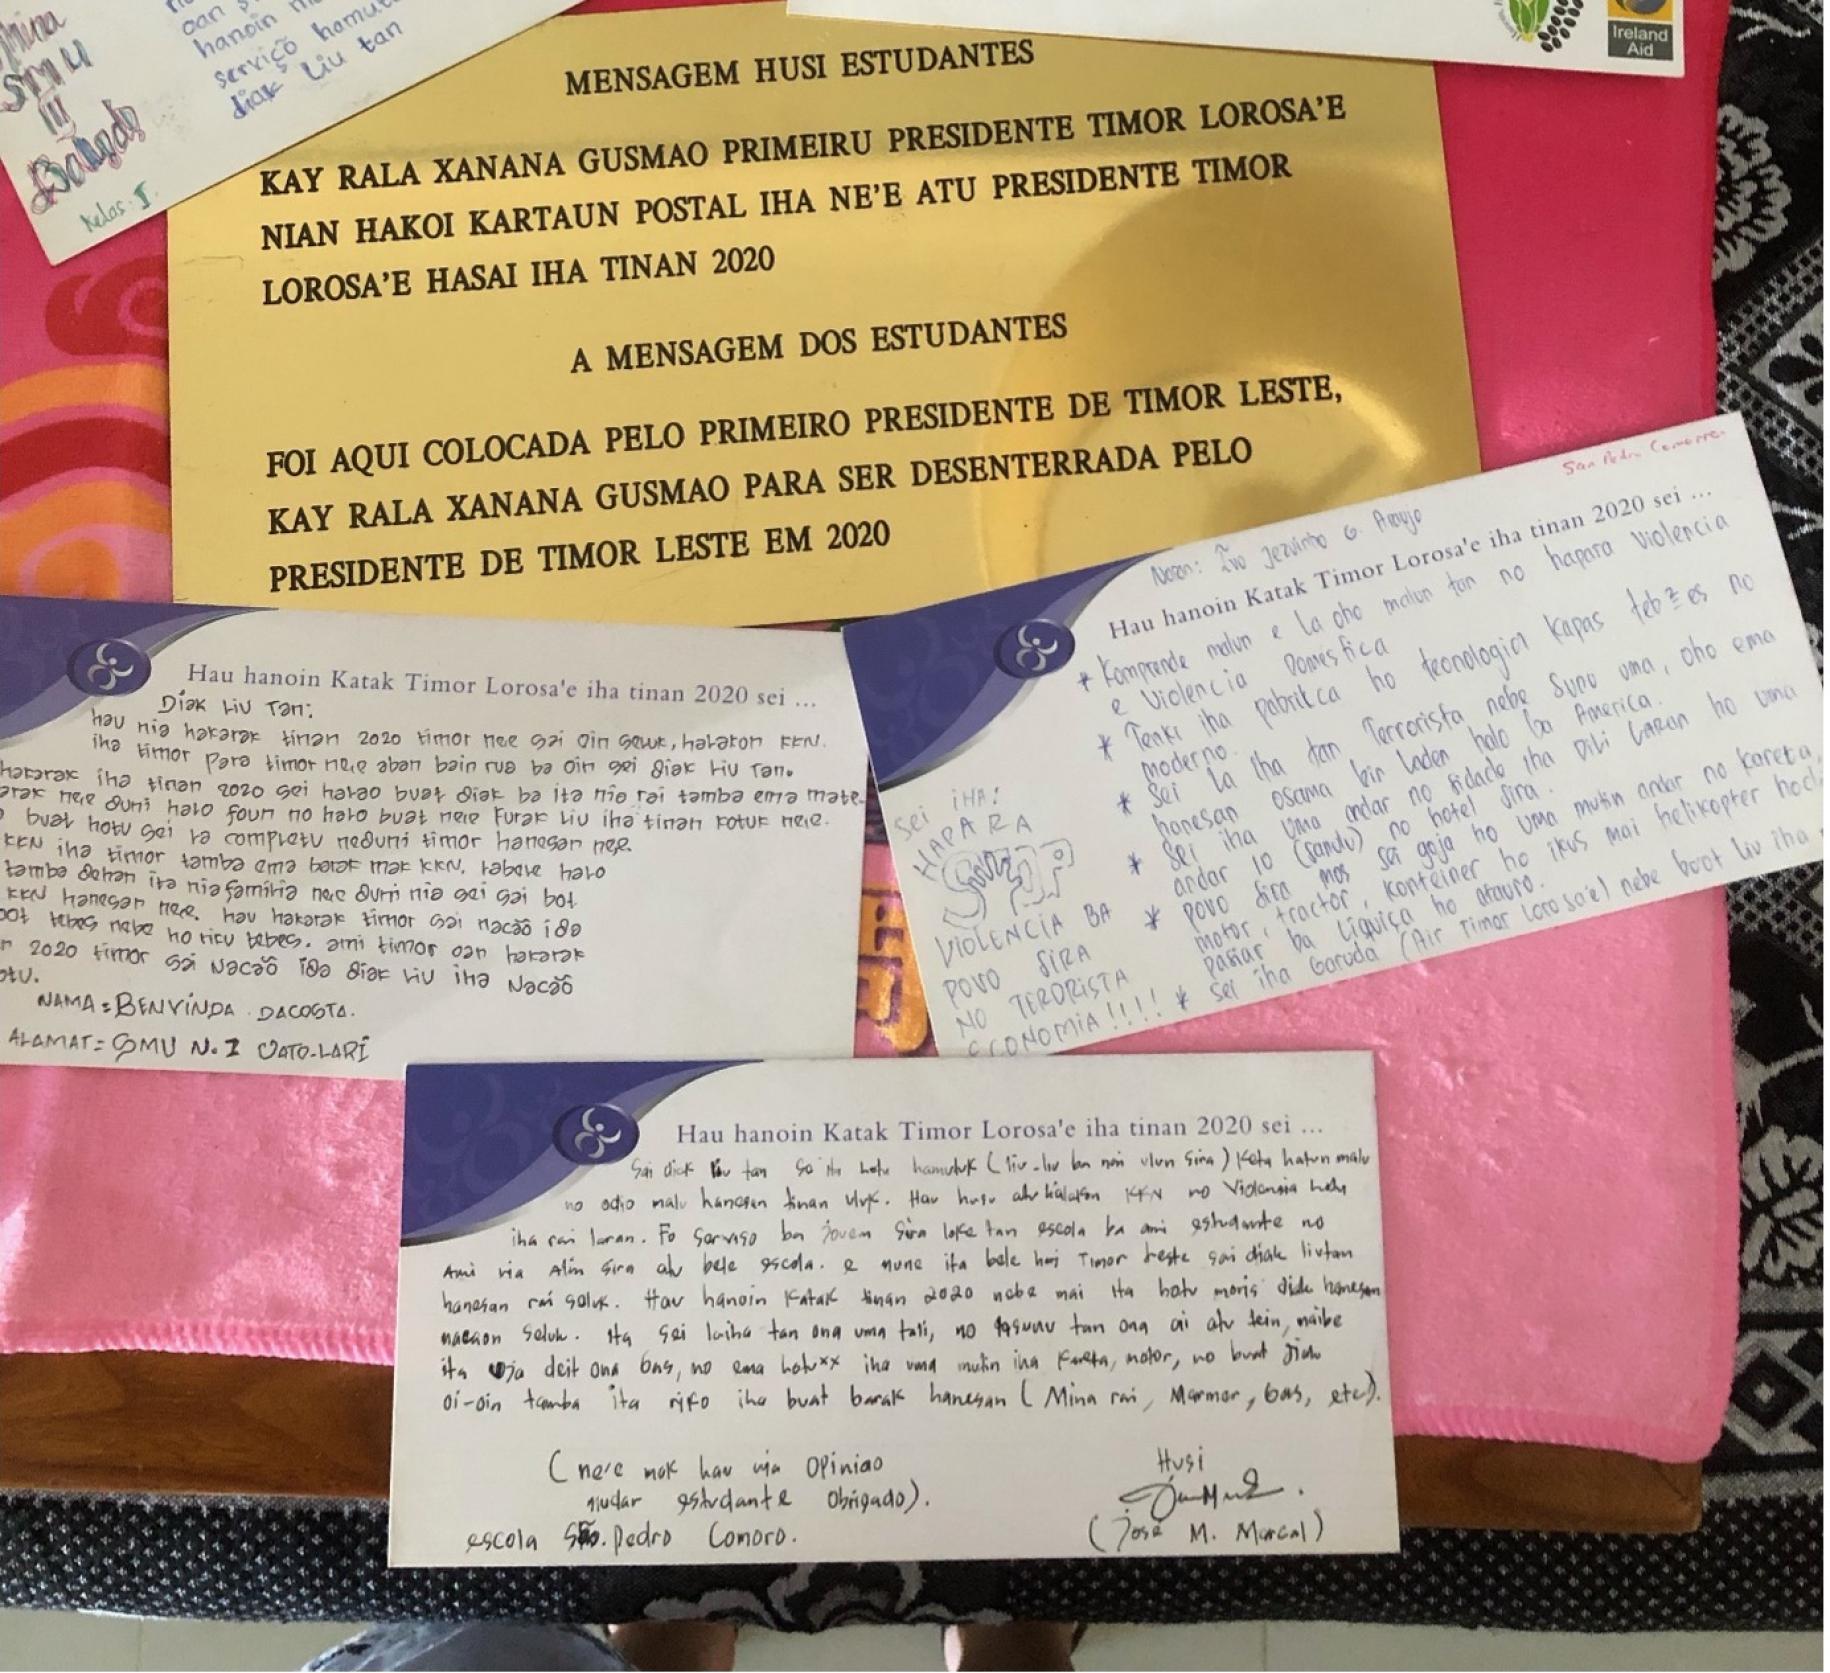 SMU
III
Kelas: I.
oan
hanoin
serviçõ hamutu
diak Liu tan
Ireland
Aid
MENSAGEM HUSI ESTUDANTES
KAY RALA XANANA GUSMAO PRIMEIRU PRESIDENTE TIMOR LOROSA'E
NIAN HAKOI KARTAUN POSTAL IHA NE'E ATU PRESIDENTE TIMOR
LOROSA'E HASAI IHA TINAN 2020
A MENSAGEM DOS ESTUDANTES
FOI AQUI COLOCADA PELO PRIMEIRO PRESIDENTE DE TIMOR LESTE,
KAY RALA XANANA GUSMAO PARA SER DESENTERRADA PELO
PRESIDENTE DE TIMOR LESTE EM 2020
Hau hanoin Katak Timor Lorosa'e iha tinan 2020 sei ...
Diak Liu Tan:
hau nia hakarak tinan 2020 timor nee sai oin seluk, halakon KKN.
iha timor para timor neie aban bain rua ba oin sei diak Liu Tan.
hakarak iha tinan 2020 sei harao buat diak ba ita nia rai tamba ema mate
neie duni halo foun no halo buat neie Furak Liu iha tinan kotuk neie.
buat hotu sei la completu neduni timor hanesan nee.
KKN iha timor tamba ema barak mak KKN. labele halo
tamba dehan ita nia família neie duni nia sei sai bot
KKN hanesan neie. hau hakarak timor sai nacão ida
tebes nebe ho ricu tebes. ami timor oan hakarak
2020 timor sai Nacão ida diak Liu iha Nacão
NAMA = BENVINDA DACOSTA.
ALAMAT = SMU N. I UATO-LARI
San Pedro
Naran: Ivo Jezuinho G. Araujo
Hau hanoin Katak Timor Lorosa'e iha tinan 2020 sei ...
* Komprende malun e La oho malun tan no hapara Violencia
e Violencia Doméstica
* Tenki iha pabrikca ho teonologia kapas teb²es no
moderno.
* Sei La iha tan Terrorista nebe Sunu uma, oho ema
hanesan osama bin Laden halo ba America.
* Sei iha uma andar no sidade iha Dili Laran ho uma
andar 10 (sanulu) no hotel sira.
* Povo sira mos sei goja ho uma mutin andar no kareta,
motor, tractor, konteiner ho ikus mai helikopter hodi
pasiar ba Liquiça ho atauro.
* Sei iha Garuda (Air Timor Lorosa'e) nebe boot Liu iha
Sei iHA:
HAPARA
VIOLENCIA BA
POVO SIRA
NO TERORISTA
ECONOMIA!!!!
Hau hanoin Katak Timor Lorosa'e iha tinan 2020 sei ...
Sai diak liu tan so ita hotu hamutuk (liu-liu ba nai ulun sira) Keta hatun malu
no odio malu hanesan tinan uluk. Hau husu atu halakon KKN no Violensia hotu
iha rai laran. Fo serviso ba joven sira loke tan escola ba ami estudante no
Ami nia Alin sira atu bele escola. e nune ita bele hoi Timor Leste sai diak liutan
hanesan rai seluk. Hau hanoin katak tinan 2020 nebe mai ita hotu moris diak hanesan
nacaon seluk. Ita sei laiha tan ona uma tali, no tan ona ai atu tein, naibe
ita uja deit ona Gas, no ema hotu×× iha uma mutin iha Kareta, motor, no buat diak
oi-oin tamba ita riko iha buat barak hanesan (Mina rai, Marmor, Gas, etc).
(ne'e mak hau nia Opiniao
nudar estudante Obrigado).
escola São. Pedro Comoro.
Husi
(José M. Marcal)